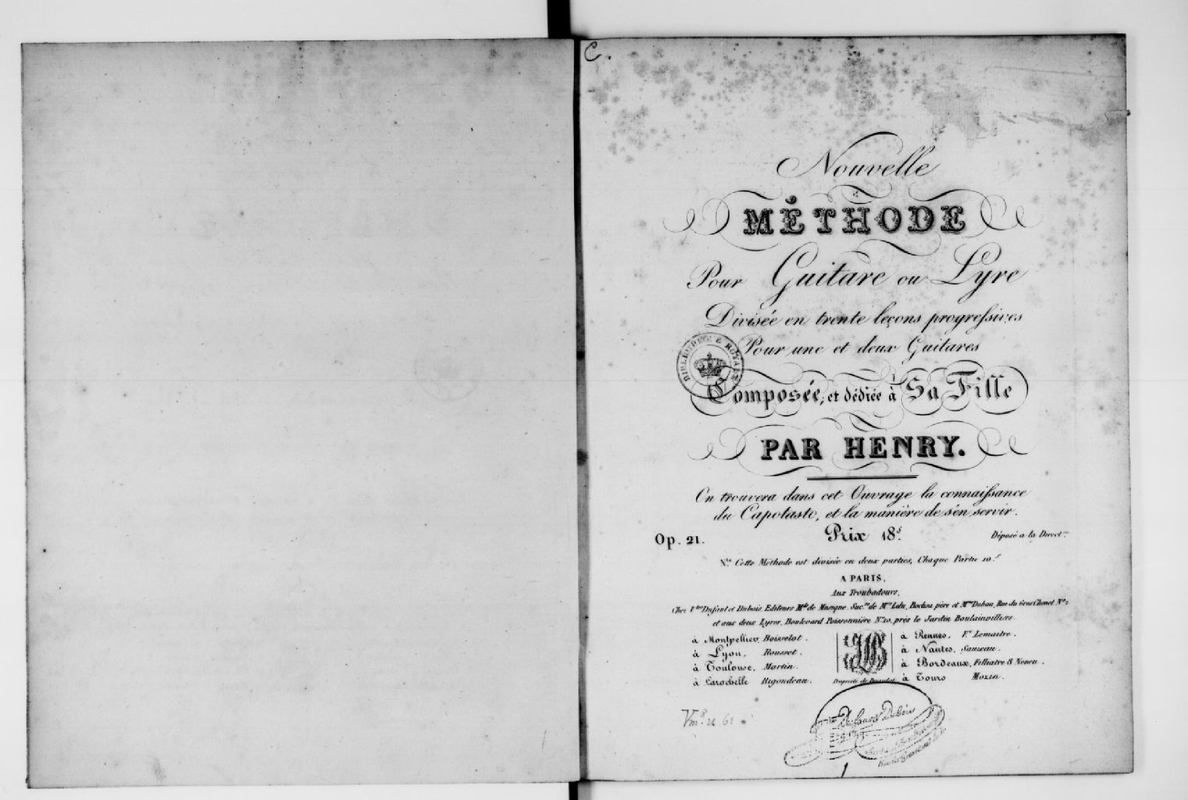 C.
Nouvelle
MÉTHODE
Pour Guitare ou Lyre
Divisée en trente leçons progressives
Pour une et deux Guitares
BIBLIOTHÈQUE ROYALE
Composée, et dédiée à Sa Fille
PAR HENRY.
On trouvera dans cet Ouvrage la connaissance
du Capotasto, et la manière de s'en servir.
Op. 21.
Prix 18f.
Déposé a la Direct.on
Na. Cette Méthode est divisée en deux parties, Chaque Partie 10f
A PARIS,
Aux Troubadours,
Chez Dufaut et Dubois, Editeurs Mds de Musique Succ.rs de Mme Le Duhan, Rue du Gros Chenet No. 2
et aux deux Lyres, Boulevard Poissonnière No. 10, près le Jardin Boulainvilliers.
à Montpellier, Boisselot.
à Lyon, Rousset.
à Toulouse, Martin.
à Larochelle Rigoudeau.
à Rennes,
à Nantes,
à Bordeaux, Filliatre & Neveu.
à Tours
Vm8. u. 61
1